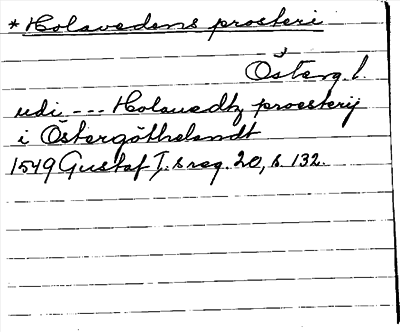 *Holavedens prosteri
Österg. l.
udi --- Holauedtz proesterij
i Östergöthelandt
1549 Gustaf I:s reg. 20, s. 132.